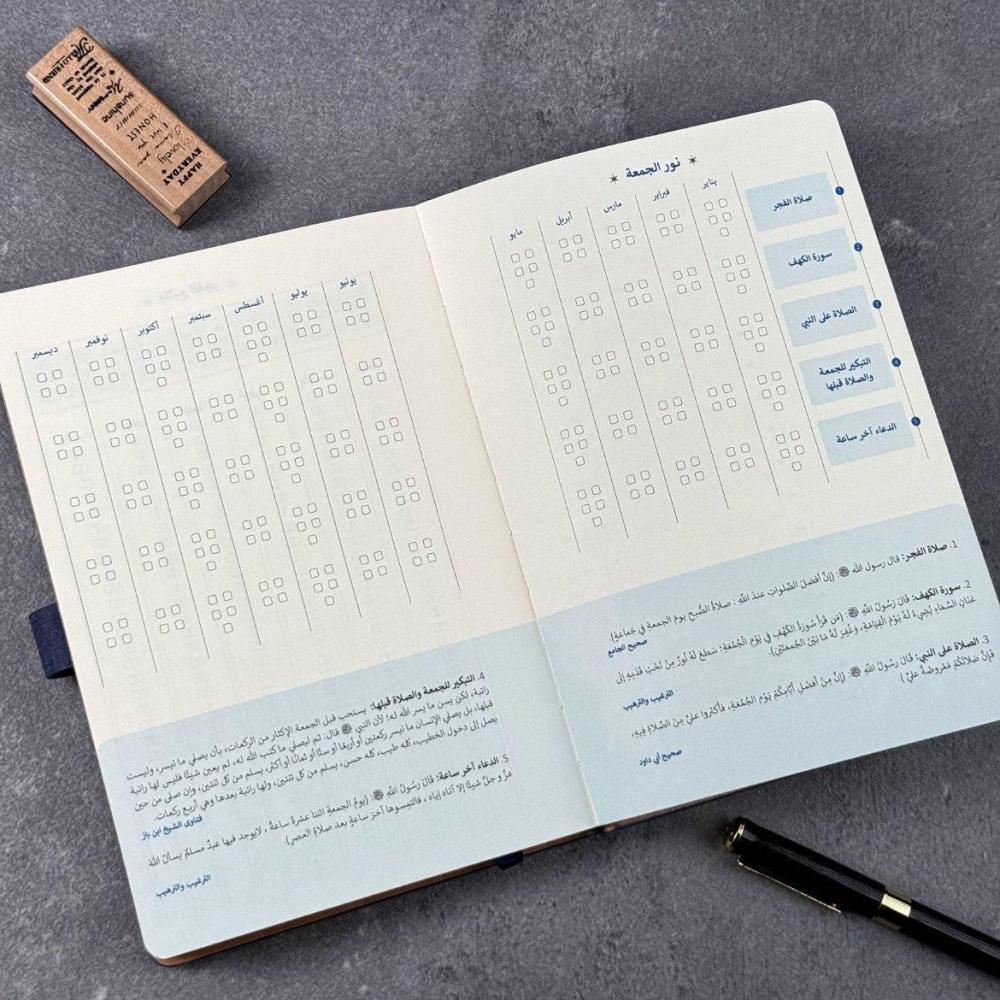 ✶ نور الجمعة ✶
يناير
فبراير
مارس
أبريل
مايو
1 صلاة الفجر
2 سورة الكهف
3 الصلاة على النبي
4 التبكير للجمعة
والصلاة قبلها
5 الدعاء آخر ساعة
1. صلاة الفجر: قال رسول الله ﷺ: (إنَّ أفضلَ الصَّلواتِ عندَ اللهِ: صلاةُ الصُّبحِ يومَ الجمعةِ في جَماعةٍ).
صحيح الجامع
2. سورة الكهف: قالَ رَسُولُ اللهِ ﷺ: (مَن قرَأَ سُورَةَ الكَهْفِ في يَوْمِ الْجُمْعَةِ؛ سَطَعَ لهُ نُورٌ مِنْ تَحْتِ قدَمِهِ إلى
عَنَانِ السَّماءِ يُضِيءُ لَهُ يَوْمَ القِيَامَةِ، وَغُفِرَ لَهُ مَا بَيْنَ الجُمعَتَيْنِ).
الترغيب والترهيب
3. الصلاة على النبي: قالَ رسُولُ اللهِ ﷺ: (إنَّ مِن أفضَلِ أيَّامِكُمْ يَوْمَ الجُمُعَةِ، فأكثروا عليَّ مِنَ الصَّلاةِ فِيهِ،
فإنَّ صَلاتَكُمْ مَعروضةٌ عليَّ).
صحيح أبي داود
يونيو
يوليو
أغسطس
سبتمبر
أكتوبر
نوفمبر
ديسمبر
4. التبكير للجمعة والصلاة قبلها: يستحب قبل الجمعة الإكثار من الركعات، بأن يصلي ما تيسر، وليست
راتبة، لكن يسن ما يسر الله له؛ لأن النبي ﷺ قال: ثم ليصلي ما كتب الله له، لم يعين شيئًا فليس لها راتبة
قبلها، بل يصلي الإنسان ما تيسر ركعتين أو أربعًا أو ستًا أو ثمانًا أو أكثر، يسلم من كل ثنتين، وإن صلى من حين
يصل إلى دخول الخطيب، كله طيب، كله حسن، يسلم من كل ثنتين، ولها راتبة بعدها وهي أربع ركعات.
فتاوى الشيخ ابن باز
5. الدعاء آخر ساعة: قالَ رسُولُ اللهِ ﷺ: (يومُ الجمعةِ اثنتا عشرةَ ساعةً، لايوجد فيها عبدٌ مسلمٌ يسألُ اللهَ
عزَّ وجلَّ شيئًا إلا آتاه إياه، فالتمسوها آخرَ ساعةٍ بعد صلاةِ العصر).
الترغيب والترهيب
HELLO FRIEND
sunshine
HONEST
lovely
HAPPY
EVERYDAY